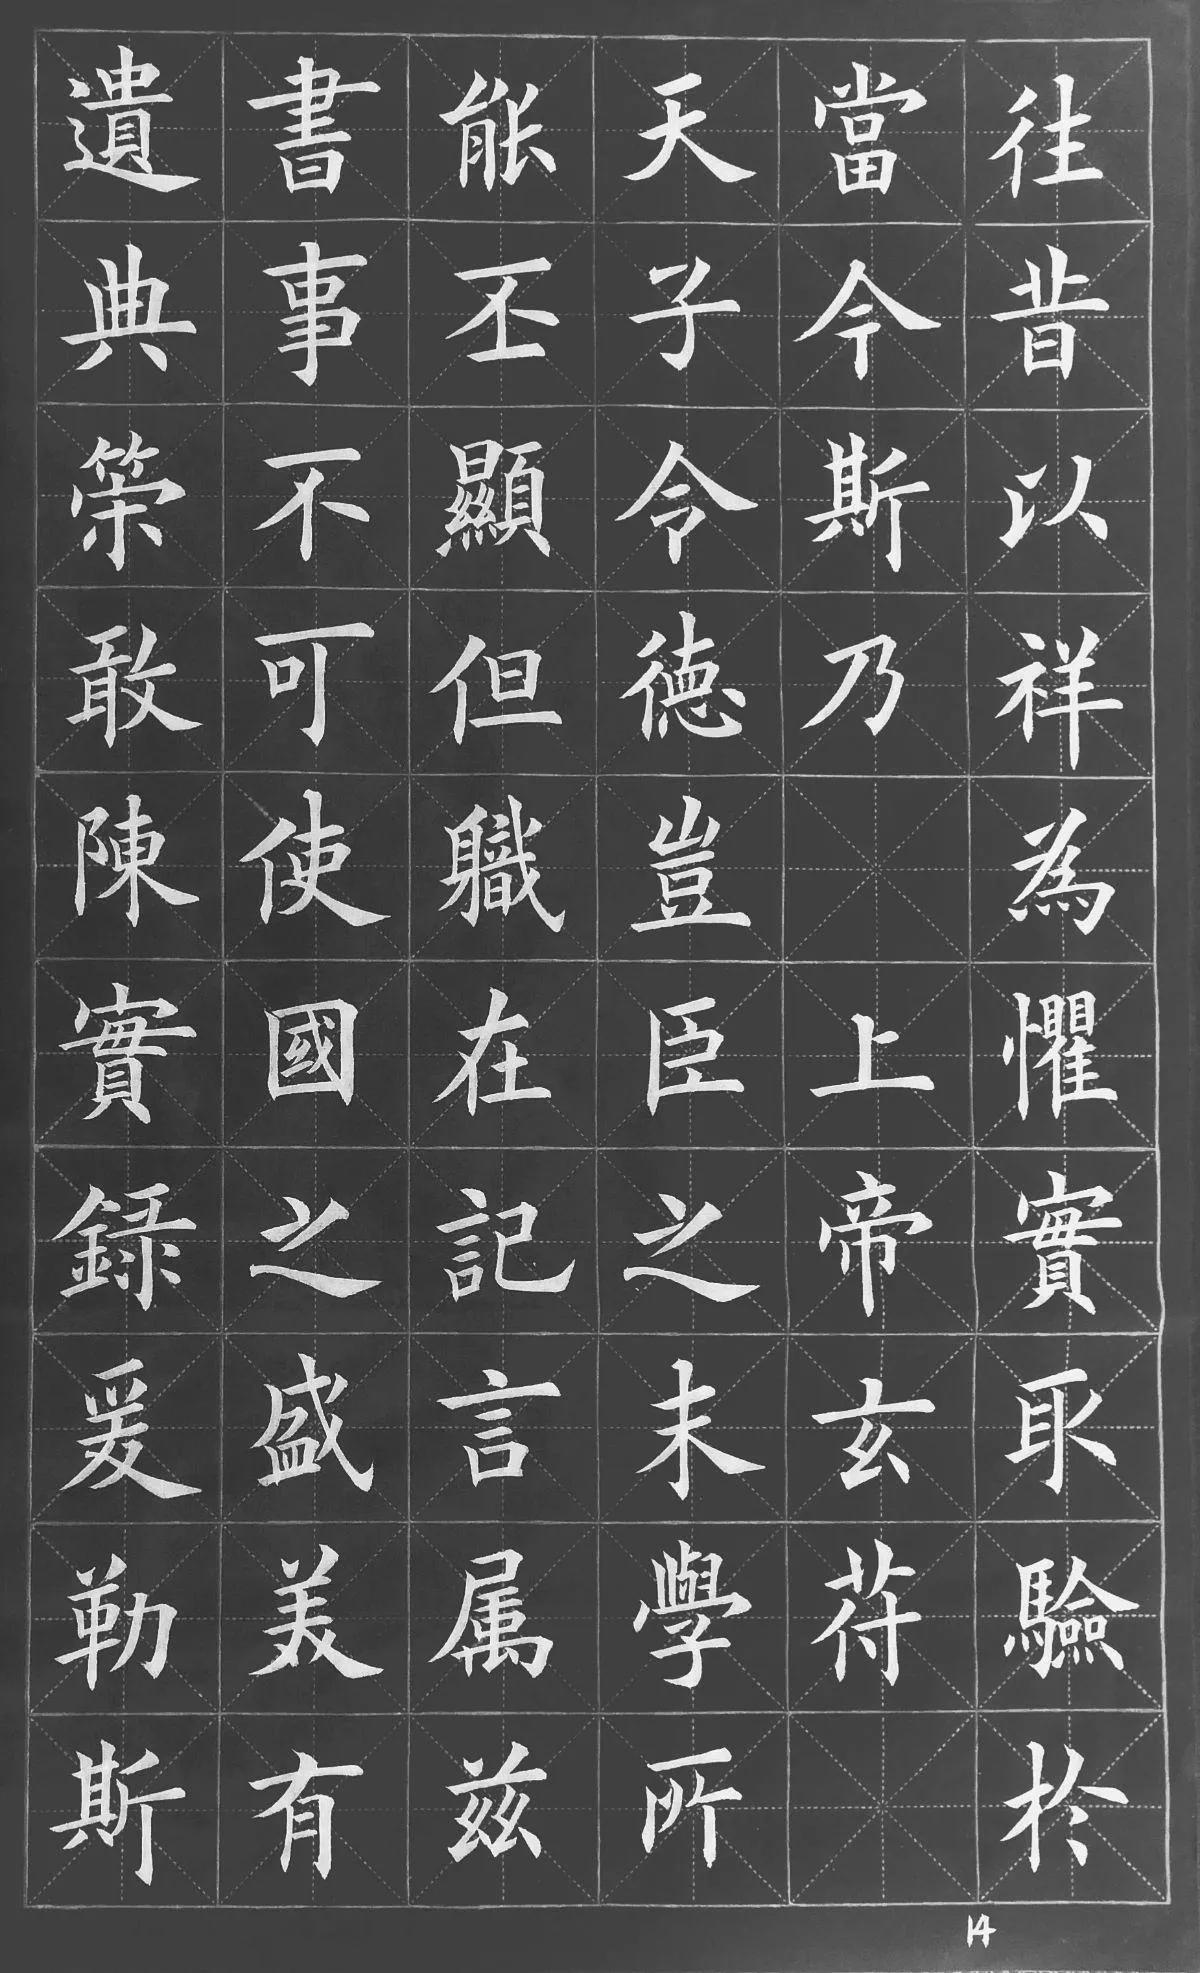 往昔以祥為懼實取驗於
當今斯乃上帝玄苻
天子令德豈臣之末學所
能丕顯但職在記言属兹
書事不可使國之盛美有
遺典策敢陳實録爰勒斯
14